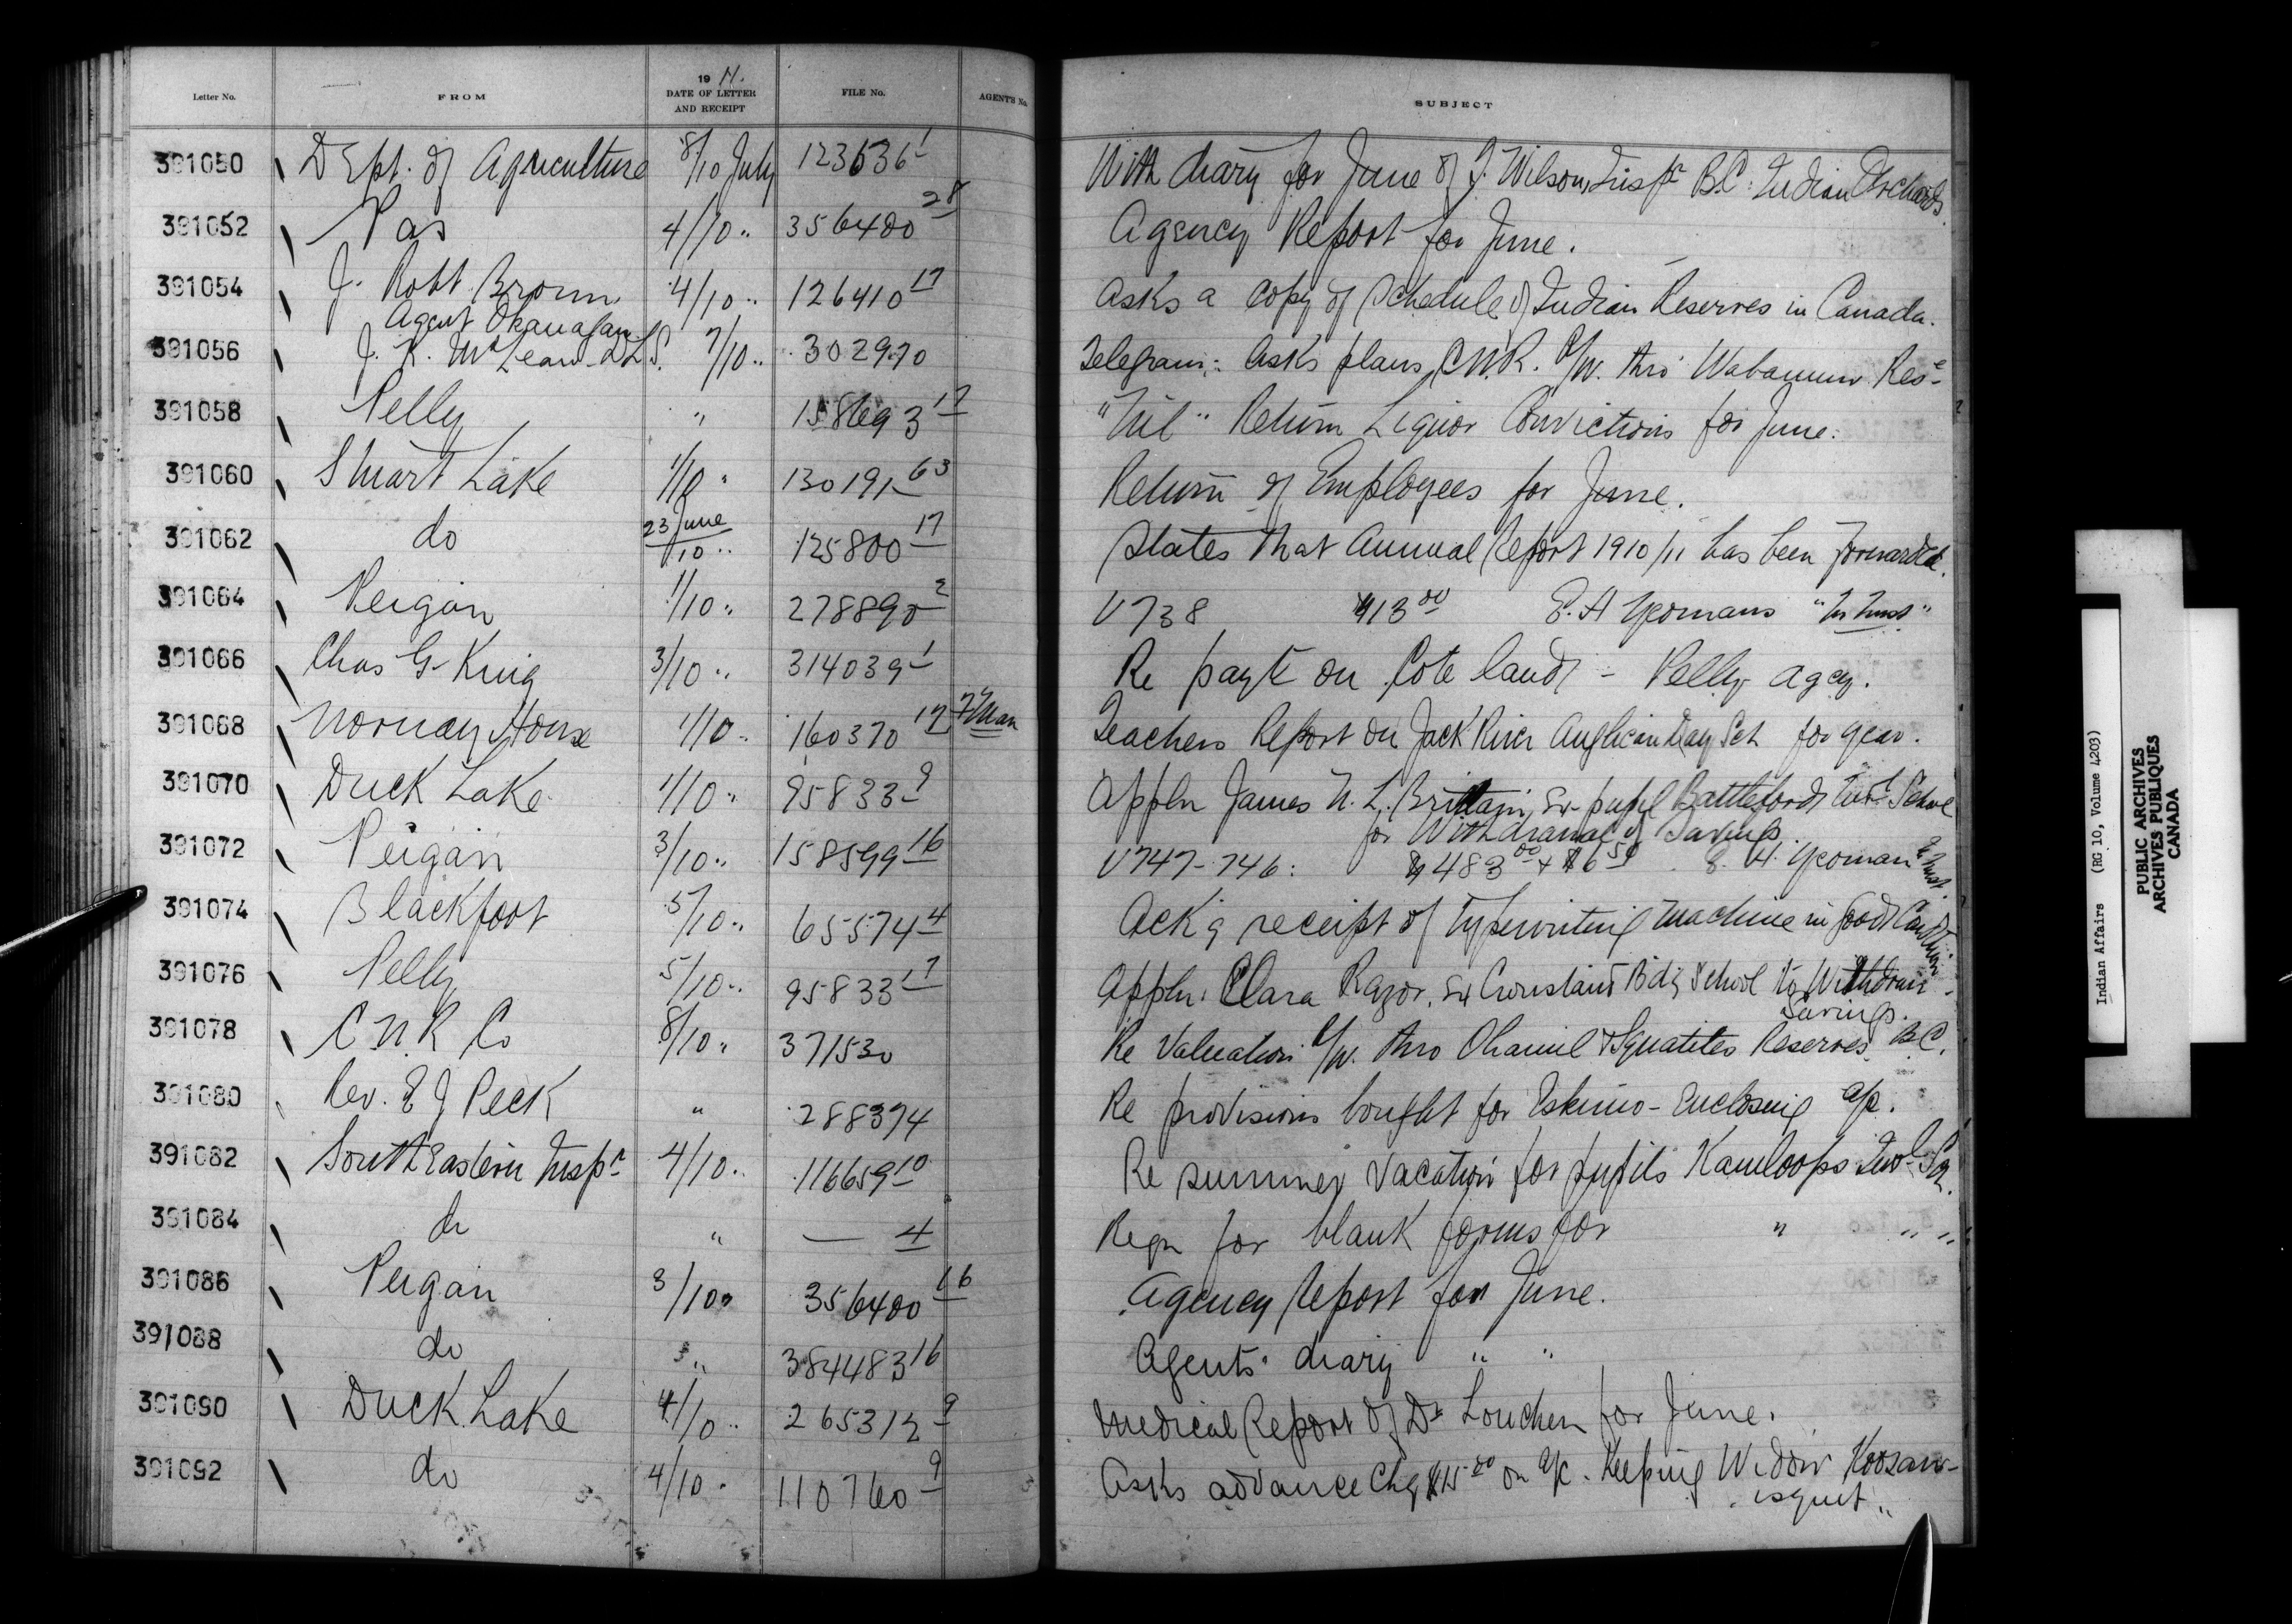 Letter No. FROM 19 11. DATE OF LETTER AND RECEIPT FILE No. AGENT'S No. SUBJECT
391050 Dept. of Agriculture 8/10 July 123636 1 With diary for June of T. Wilson, Inspr B.C. Indian Orchards.
391052 Pas 4/10 " 356400 28 Agency Report for June.
391054 J. Robt Brown 4/10 " 126410 17 Asks a copy of Schedule of Indian Reserves in Canada.
Agent Okanagan
391056 J. K. McLean D.L.S. 7/10 " 302970 Telegram: Asks plans C.N.R. R/W. thro' Wabamun Rese
391058 Pelly " 158693 17 "Nil" Return Liquor Convictions for June.
391060 Stuart Lake 1/10 " 130191 63 Return of Employees for June.
391062 do 23 June/10 " 125800 17 States that Annual Report 1910/11 has been forwarded.
391064 Peigan 1/10 " 278890 2 V738 $413 00 E. H Yeomans "In trust"
391066 Chas G. King 3/10 " 314039 1 Re payt on Cote lands - Pelly agcy.
391068 Norway House 1/10 " 160370 17 7 Man Teachers Report on Jack River Anglican Day Sch for year.
391070 Duck Lake 1/10 " 95833 9 Appln James N. L. Brittain, Ex-pupil Battleford Indl School
for Withdrawal of Savings.
391072 Peigan 3/10 " 158599 16 V747-746: $483 00 + $6 50 E. H. Yeomans In trust
391074 Blackfoot 5/10 " 65574 4 Ackg receipt of typewriting machine in good Condition
391076 Pelly 5/10 " 95833 17 Appln: Clara Razor, Ex Crowstand Bdg School to Withdraw
Savings.
391078 C N R Co 8/10 " 371530 Re Valuation R/W. thro Ohamil & Squatits Reserves B.C.
391080 Rev. E J Peck " 288374 Re provisions bought for Eskimo - Enclosing a/c.
391082 South Eastern Inspr 4/10 " 116659 10 Re summer vacation for pupils Kamloops Indl Sch.
391084 do " — 4 Reqn for blank forms for " " "
391086 Peigan 3/10 " 356400 16 Agency Report for June.
391088 do 3 " 384483 16 Agents' diary " "
391090 Duck Lake 4/10 " 265312 9 Medical Report of Dr for June.
391092 do 4/10 " 110760 9 Asks advance Chq $15 00 on a/c. Keeping Widow Koosaw-
isquit "
Indian Affairs (RG 10, Volume 4203)
PUBLIC ARCHIVES
ARCHIVES PUBLIQUES
CANADA